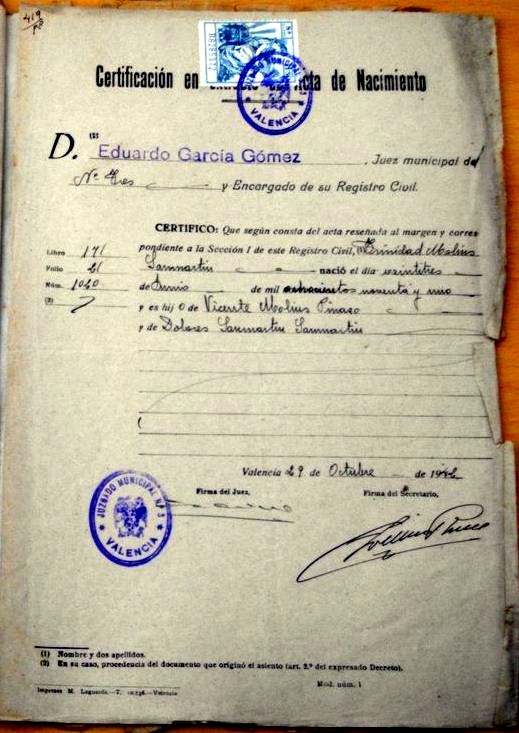 419
Certificación en Acta de Nacimiento
JUZGADO MUNICIPAL
VALENCIA
(1)
D. Eduardo García Gómez, Juez municipal del
Nº Tres y Encargado de su Registro Civil.
CERTIFICO: Que según consta del acta reseñada al margen y corres
Libro 171 pondiente a la Sección I de este Registro Civil, Trinidad Molins
Folio 21 Sanmartin nació el día veintitres
Núm. 1020 de Junio de mil ochocientos noventa y uno
(2) y es hij o de Vicente Molins Pinazo
y de Dolores Sanmartin Sanmartin
Valencia 29 de Octubre de 1942
Firma del Juez, Firma del Secretario,
JUZGADO MUNICIPAL Nº 3
VALENCIA
(1) Nombre y dos apellidos.
(2) En su caso, procedencia del documento que originó el asiento (art. 2.º del expresado Decreto).
Imprenta M. Laguarda.—T. —Valencia Mod. núm. 1